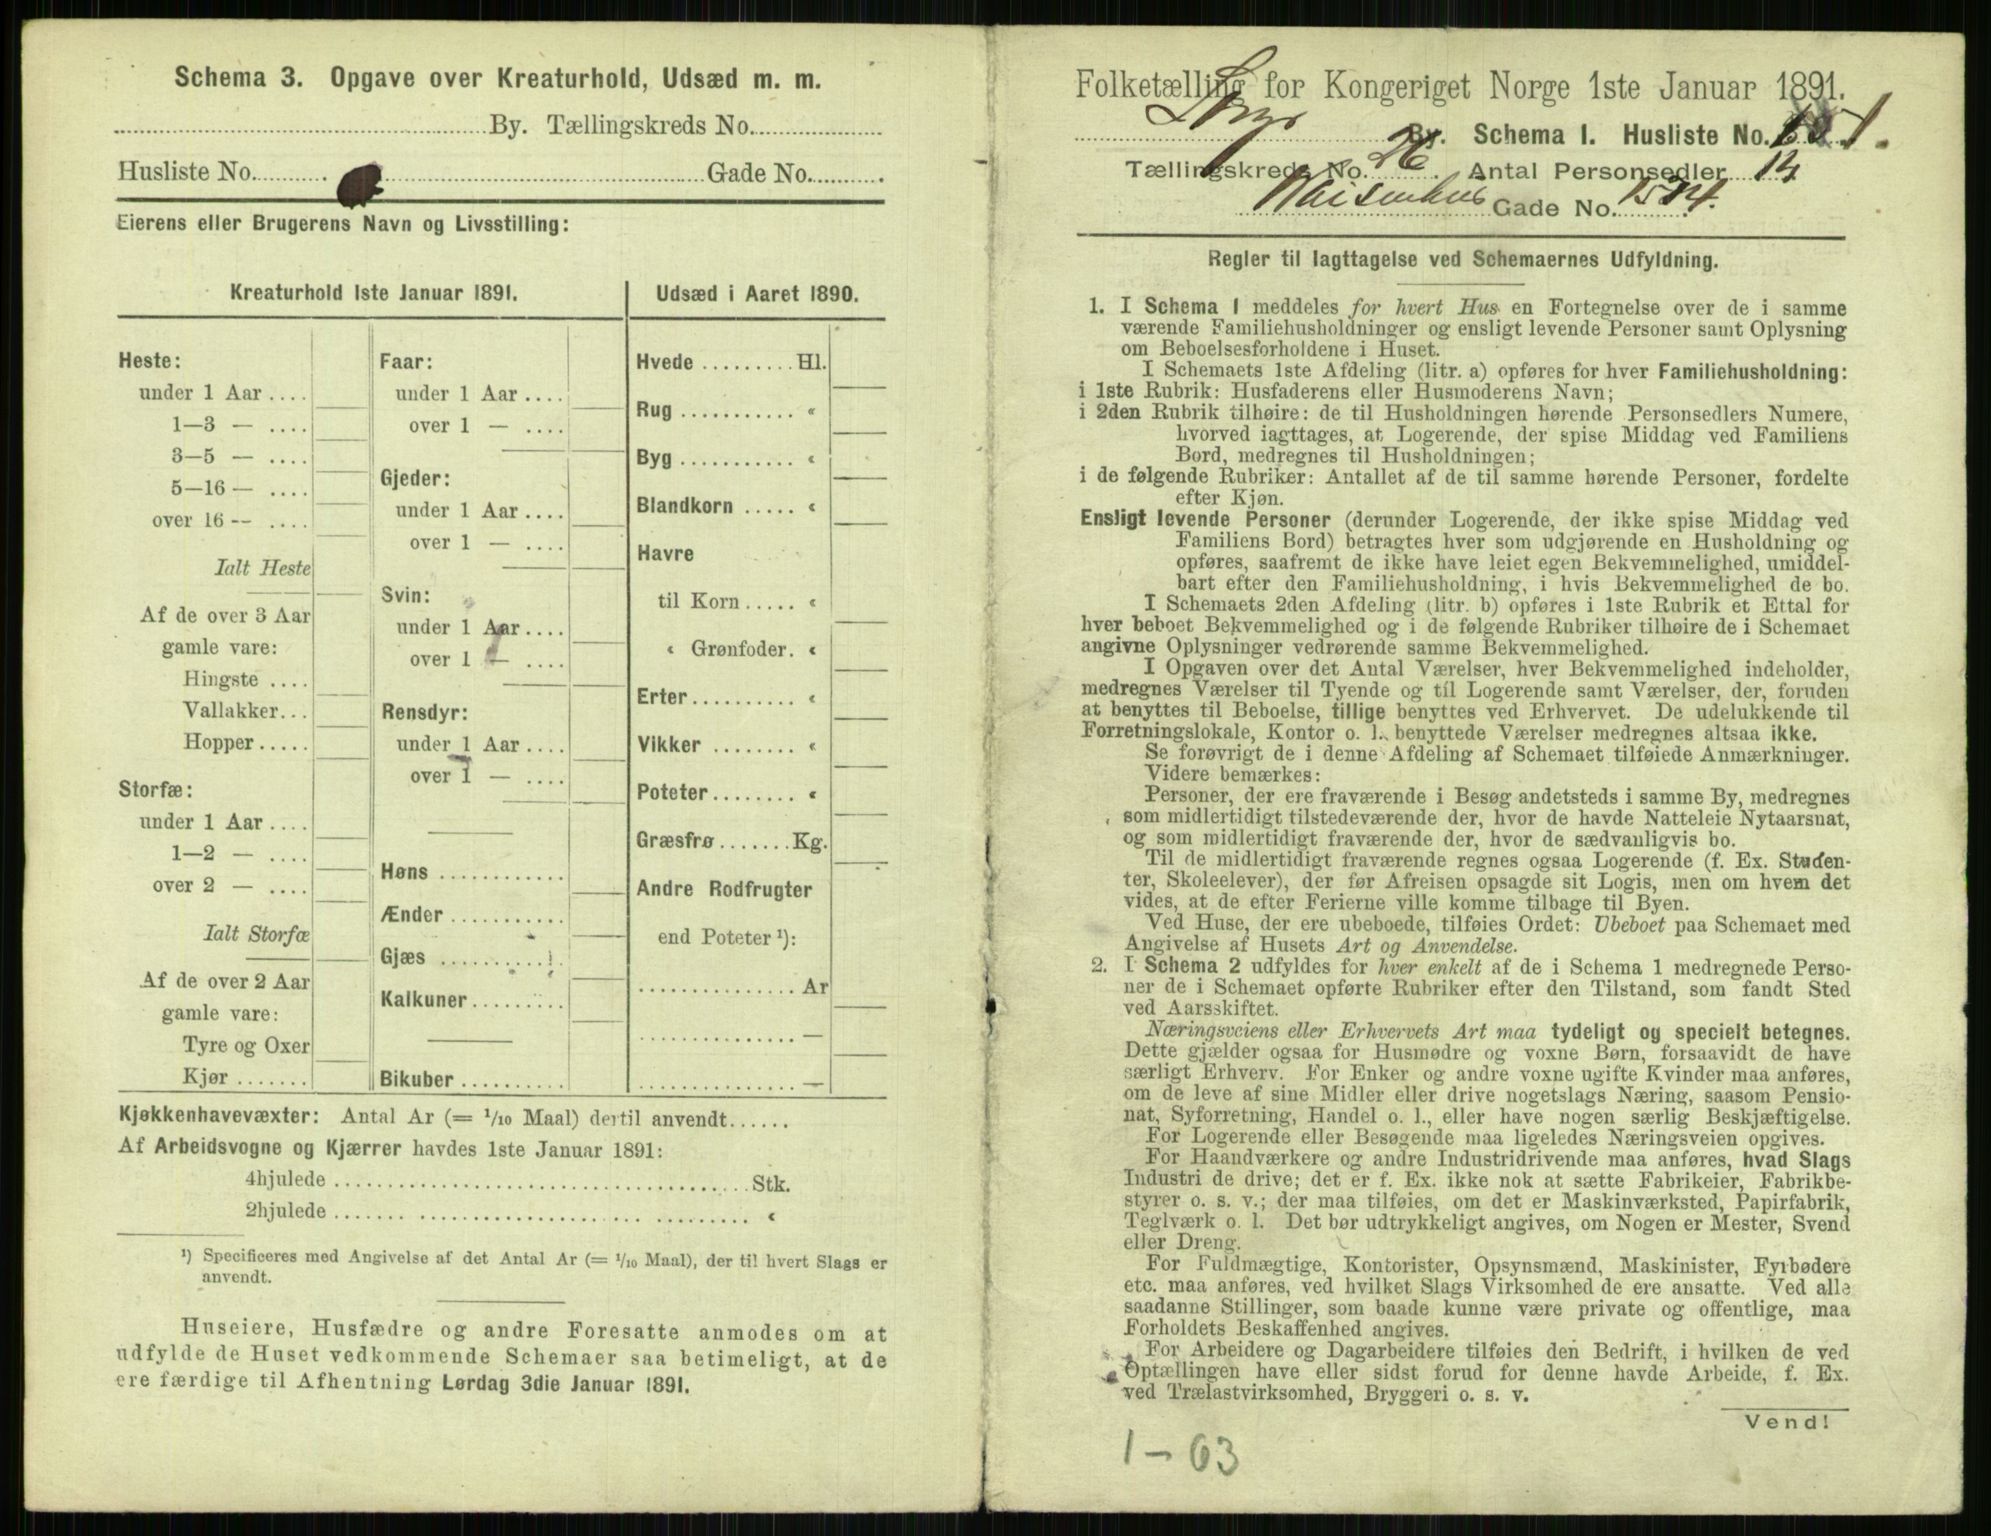 Schema 3. Opgave over Kreaturhold, Udsæd m. m.
By. Tællingskreds No.
Husliste No. Gade No.
Eierens eller Brugerens Navn og Livsstilling:
Kreaturhold 1ste Januar 1891.
Heste:
under 1 Aar ....
1—3 — ....
3—5 — ....
5—16 — ....
over 16 -- ....
Ialt Heste
Af de over 3 Aar
gamle vare:
Hingste ....
Vallakker...
Hopper.....
Storfæ:
under 1 Aar ....
1—2 — ....
over 2 — ....
Ialt Storfæ
Af de over 2 Aar
gamle vare:
Tyre og Oxer
Kjør .......
Faar:
under 1 Aar ....
over 1 — ....
Gjeder:
under 1 Aar ....
over 1 — ....
Svin:
under 1 Aar....
over 1 — ....
Rensdyr:
under 1 Aar ....
over 1 — ....
Høns ............
Ænder...........
Gjæs ...........
Kalkuner.........
Bikuber ..........
Udsæd i Aaret 1890.
Hvede ......... Hl.
Rug ........... «
Byg ........... «
Blandkorn ..... «
Havre
til Korn ..... «
« Grønfoder. «
Erter.......... «
Vikker ........ «
Poteter........ «
Græsfrø.......Kg.
Andre Rodfrugter
end Poteter ¹):
............... Ar
............... —
............... —
Kjøkkenhavevæxter: Antal Ar (= 1/10 Maal) dertil anvendt......
Af Arbeidsvogne og Kjærrer havdes 1ste Januar 1891:
4hjulede ........ Stk.
2hjulede ........ «
¹) Specificeres med Angivelse af det Antal Ar (= 1/10 Maal), der til hvert Slags er
anvendt.
Huseiere, Husfædre og andre Foresatte anmodes om at
udfylde de Huset vedkommende Schemaer saa betimeligt, at de
ere færdige til Afhentning Lørdag 3die Januar 1891.
Folketælling for Kongeriget Norge 1ste Januar 1891.
By. Schema 1. Husliste No. 1.
Tællingskreds No. 26. Antal Personsedler 14
Waisenhus Gade No. 1534.
Regler til Iagttagelse ved Schemaernes Udfyldning.
1. I Schema 1 meddeles for hvert Hus en Fortegnelse over de i samme
værende Familiehusholdninger og ensligt levende Personer samt Oplysning
om Beboelsesforholdene i Huset.
I Schemaets 1ste Afdeling (litr. a) opføres for hver Familiehusholdning:
i 1ste Rubrik: Husfaderens eller Husmoderens Navn;
i 2den Rubrik tilhøire: de til Husholdningen hørende Personsedlers Numere,
hvorved iagttages, at Logerende, der spise Middag ved Familiens
Bord, medregnes til Husholdningen;
i de følgende Rubriker: Antallet af de til samme hørende Personer, fordelte
efter Kjøn.
Ensligt levende Personer (derunder Logerende, der ikke spise Middag ved
Familiens Bord) betragtes hver som udgjørende en Husholdning og
opføres, saafremt de ikke have leiet egen Bekvemmelighed, umiddel-
bart efter den Familiehusholdning, i hvis Bekvemmelighed de bo.
I Schemaets 2den Afdeling (litr. b) opføres i 1ste Rubrik et Ettal for
hver beboet Bekvemmelighed og i de følgende Rubriker tilhøire de i Schemaet
angivne Oplysninger vedrørende samme Bekvemmelighed.
I Opgaven over det Antal Værelser, hver Bekvemmelighed indeholder,
medregnes Værelser til Tyende og til Logerende samt Værelser, der, foruden
at benyttes til Beboelse, tillige benyttes ved Erhvervet. De udelukkende til
Forretningslokale, Kontor o. l. benyttede Værelser medregnes altsaa ikke.
Se forøvrigt de i denne Afdeling af Schemaet tilføiede Anmærkninger.
Videre bemærkes:
Personer, der ere fraværende i Besøg andetsteds i samme By, medregnes
som midlertidigt tilstedeværende der, hvor de havde Natteleie Nytaarsnat,
og som midlertidigt fraværende der, hvor de sædvanligvis bo.
Til de midlertidigt fraværende regnes ogsaa Logerende (f. Ex. Studen-
ter, Skoleelever), der før Afreisen opsagde sit Logis, men om hvem det
vides, at de efter Ferierne ville komme tilbage til Byen.
Ved Huse, der ere ubeboede, tilføies Ordet: Ubeboet paa Schemaet med
Angivelse af Husets Art og Anvendelse.
2. I Schema 2 udfyldes for hver enkelt af de i Schema 1 medregnede Perso-
ner de i Schemaet opførte Rubriker efter den Tilstand, som fandt Sted
ved Aarsskiftet.
Næringsveiens eller Erhvervets Art maa tydeligt og specielt betegnes.
Dette gjælder ogsaa for Husmødre og voxne Børn, forsaavidt de have
særligt Erhverv. For Enker og andre voxne ugifte Kvinder maa anføres,
om de leve af sine Midler eller drive nogetslags Næring, saasom Pensio-
nat, Syforretning, Handel o. l., eller have nogen særlig Beskjæftigelse.
For Logerende eller Besøgende maa ligeledes Næringsveien opgives.
For Haandværkere og andre Industridrivende maa anføres, hvad Slags
Industri de drive; det er f. Ex. ikke nok at sætte Fabrikeier, Fabrikbe-
styrer o. s. v.; der maa tilføies, om det er Maskinværksted, Papirfabrik,
Teglværk o. l. Det bør udtrykkeligt angives, om Nogen er Mester, Svend
eller Dreng.
For Fuldmægtige, Kontorister, Opsynsmænd, Maskinister, Fyrbødere
etc. maa anføres, ved hvilket Slags Virksomhed de ere ansatte. Ved alle
saadanne Stillinger, som baade kunne være private og offentlige, maa
Forholdets Beskaffenhed angives.
For Arbeidere og Dagarbeidere tilføies den Bedrift, i hvilken de ved
Optællingen have eller sidst forud for denne havde Arbeide, f. Ex.
ved Trælastvirksomhed, Bryggeri o. s. v.
Vend!
1 — 63